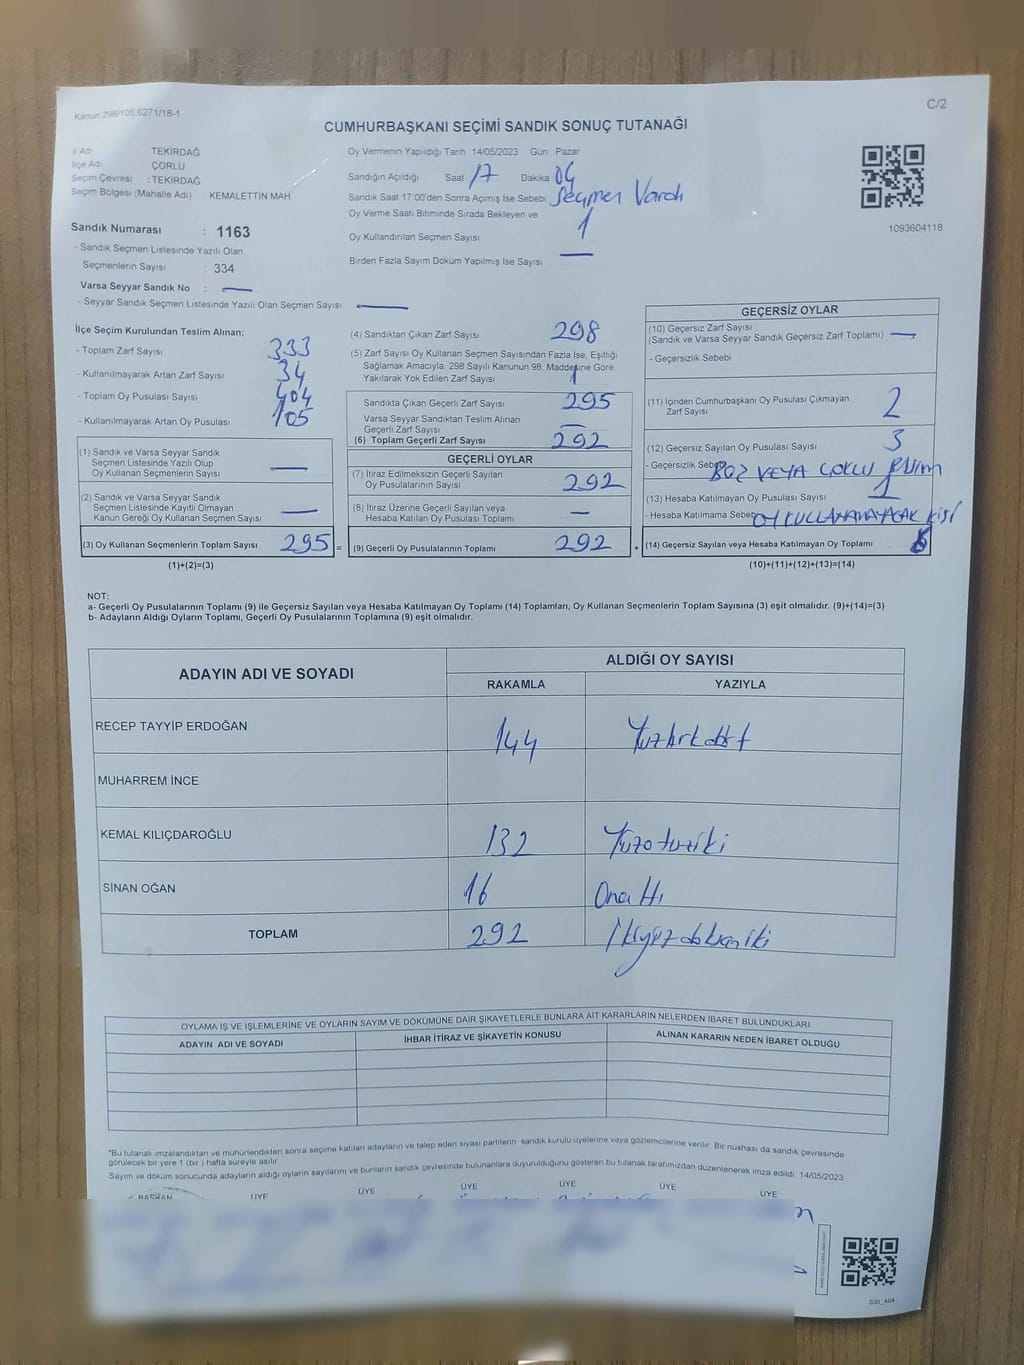 Kanun:298/105;6271/18-1
C/2
CUMHURBAŞKANI SEÇİMİ SANDIK SONUÇ TUTANAĞI
İl Adı TEKİRDAĞ
İlçe Adı ÇORLU
Seçim Çevresi : TEKİRDAĞ
Seçim Bölgesi (Mahalle Adı) KEMALETTİN MAH
Sandık Numarası : 1163
- Sandık Seçmen Listesinde Yazılı Olan
Seçmenlerin Sayısı : 334
Varsa Seyyar Sandık No : —
- Seyyar Sandık Seçmen Listesinde Yazılı Olan Seçmen Sayısı: —
Oy Vermenin Yapıldığı Tarih 14/05/2023 Gün: Pazar
Sandığın Açıldığı Saat 17 Dakika 04
Sandık Saat 17:00'den Sonra Açımış İse Sebebi Seçmen Vardı
Oy Verme Saati Bitiminde Sırada Bekleyen ve
Oy Kullandırılan Seçmen Sayısı 1
Birden Fazla Sayım Döküm Yapılmış İse Sayısı —
1093604118
İlçe Seçim Kurulundan Teslim Alınan;
- Toplam Zarf Sayısı 333
- Kullanılmayarak Artan Zarf Sayısı 34
- Toplam Oy Pusulası Sayısı 404
- Kullanılmayarak Artan Oy Pusulası 105
(1) Sandık ve Varsa Seyyar Sandık
Seçmen Listesinde Yazılı Olup
Oy Kullanan Seçmenlerin Sayısı —
(2) Sandık ve Varsa Seyyar Sandık
Seçmen Listesinde Kayıtlı Olmayan
Kanun Gereği Oy Kullanan Seçmen Sayısı —
(3) Oy Kullanan Seçmenlerin Toplam Sayısı 295 =
(1)+(2)=(3)
(4) Sandıktan Çıkan Zarf Sayısı 298
(5) Zarf Sayısı Oy Kullanan Seçmen Sayısından Fazla İse, Eşitliği
Sağlamak Amacıyla; 298 Sayılı Kanunun 98. Maddesine Göre
Yakılarak Yok Edilen Zarf Sayısı 1
Sandıkta Çıkan Geçerli Zarf Sayısı 295
Varsa Seyyar Sandıktan Teslim Alınan
Geçerli Zarf Sayısı —
(6) Toplam Geçerli Zarf Sayısı 292
GEÇERLİ OYLAR
(7) İtiraz Edilmeksizin Geçerli Sayılan
Oy Pusulalarının Sayısı 292
(8) İtiraz Üzerine Geçerli Sayılan veya
Hesaba Katılan Oy Pusulaları Toplamı —
(9) Geçerli Oy Pusulalarının Toplamı 292 +
GEÇERSİZ OYLAR
(10) Geçersiz Zarf Sayısı
(Sandık ve Varsa Seyyar Sandık Geçersiz Zarf Toplamı) —
- Geçersizlik Sebebi
(11) İçinden Cumhurbaşkanı Oy Pusulası Çıkmayan
Zarf Sayısı 2
(12) Geçersiz Sayılan Oy Pusulası Sayısı 3
- Geçersizlik Sebebi BOZ VEYA ÇOKLU
(13) Hesaba Katılmayan Oy Pusulası Sayısı 1
- Hesaba Katılmama Sebebi OY KULLANAMAYACAK KİŞİ
(14) Geçersiz Sayılan veya Hesaba Katılmayan Oy Toplamı
(10)+(11)+(12)+(13)=(14)
NOT:
a- Geçerli Oy Pusulalarının Toplamı (9) ile Geçersiz Sayılan veya Hesaba Katılmayan Oy Toplamı (14) Toplamları, Oy Kullanan Seçmenlerin Toplam Sayısına (3) eşit olmalıdır. (9)+(14)=(3)
b- Adayların Aldığı Oyların Toplamı, Geçerli Oy Pusulalarının Toplamına (9) eşit olmalıdır.
ADAYIN ADI VE SOYADI ALDIĞI OY SAYISI
RAKAMLA YAZIYLA
RECEP TAYYİP ERDOĞAN 144 Yüzkırkdört
MUHARREM İNCE
KEMAL KILIÇDAROĞLU 132 Yüzotuziki
SİNAN OĞAN 16 Onaltı
TOPLAM 292 İkiyüzdoksaniki
OYLAMA İŞ VE İŞLEMLERİNE VE OYLARIN SAYIM VE DÖKÜMÜNE DAİR ŞİKAYETLERLE BUNLARA AİT KARARLARIN NELERDEN İBARET BULUNDUKLARI
ADAYIN ADI VE SOYADI İHBAR İTİRAZ VE ŞİKAYETİN KONUSU ALINAN KARARIN NEDEN İBARET OLDUĞU
"Bu tutanak imzalandıktan ve mühürlendikten sonra seçime katılan adayların ve talep eden siyasi partilerin sandık kurulu üyelerine veya gözlemcilerine verilir. Bir nüshası da sandık çevresinde
görülecek bir yere 1 (bir) hafta süreyle asılır.
Sayım ve döküm sonucunda adayların aldığı oyların sayılarını ve bunların sandık çevresinde bulunanlara duyurulduğunu gösteren bu tutanak tarafımızdan düzenlenerek imza edildi. 14/05/2023
BAŞKAN ÜYE ÜYE ÜYE ÜYE ÜYE ÜYE